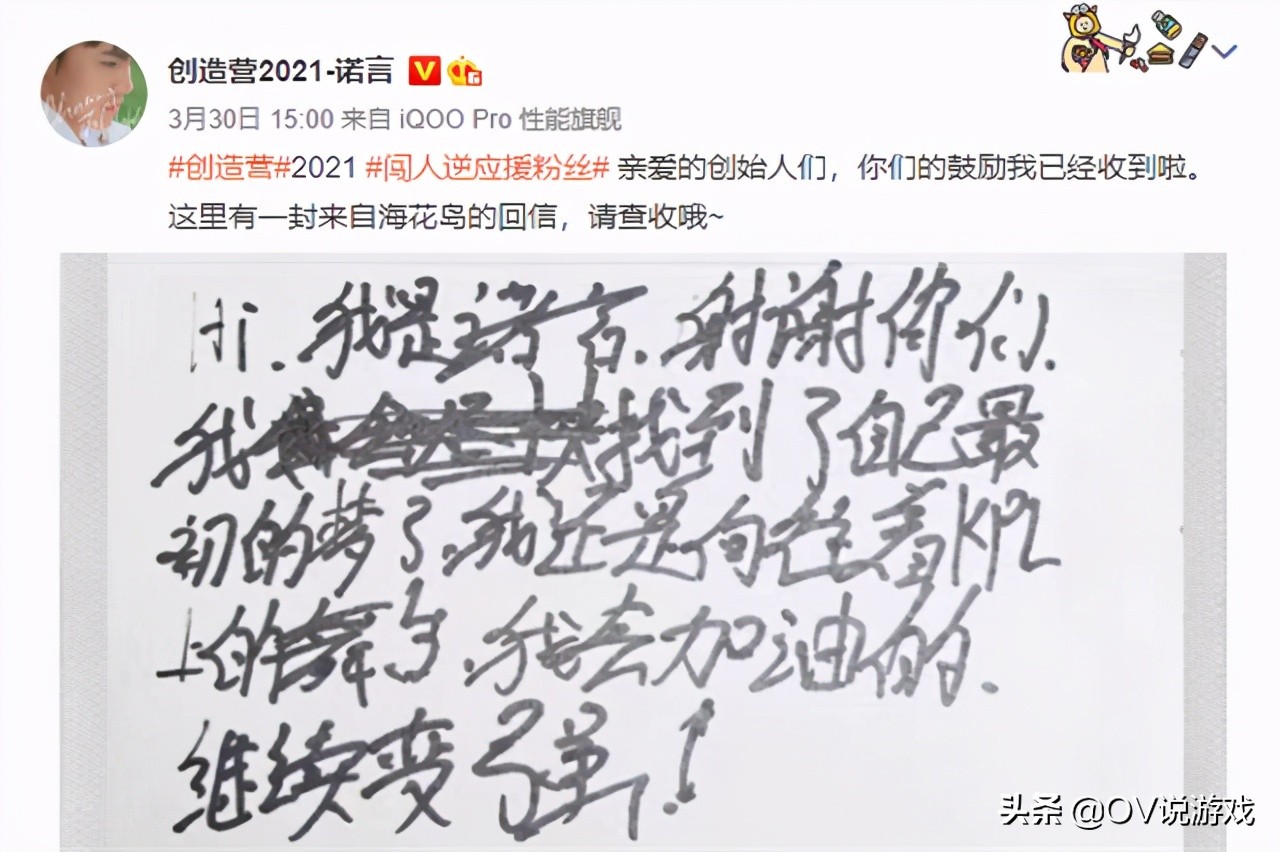 创造营2021-诺言
3月30日 15:00 来自 iQOO Pro 性能旗舰
#创造营#2021 #闯人逆应援粉丝# 亲爱的创始人们，你们的鼓励我已经收到啦。
这里有一封来自海花岛的回信，请查收哦~
Hi. 我是诺言. 谢谢你们.
我找到了自己最
初的梦了.我还是向往着KPL
上的舞台.我会加油的.
继续变强!
头条 @OV说游戏